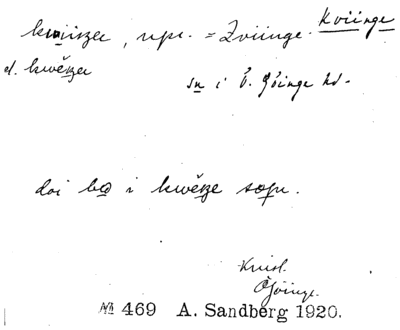 kwiisza, npr. = Zviinge. Kviinge
el. kwĕsza
sn i Ö. Göinge hd.
doi bo i kwĕsze sogn.
Knisl.
Ö Göinge.
№ 469 A. Sandberg 1920.